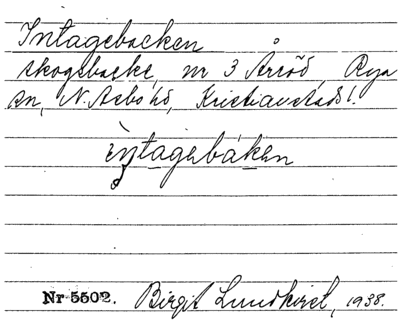 Intagebacken
skogsbacke, nr 3 Årröd, Rya
sn, N. Åsbo hd, Kristianstads l.
ìntagebáken
Nr 5502. Birgit Lundkvist, 1938.